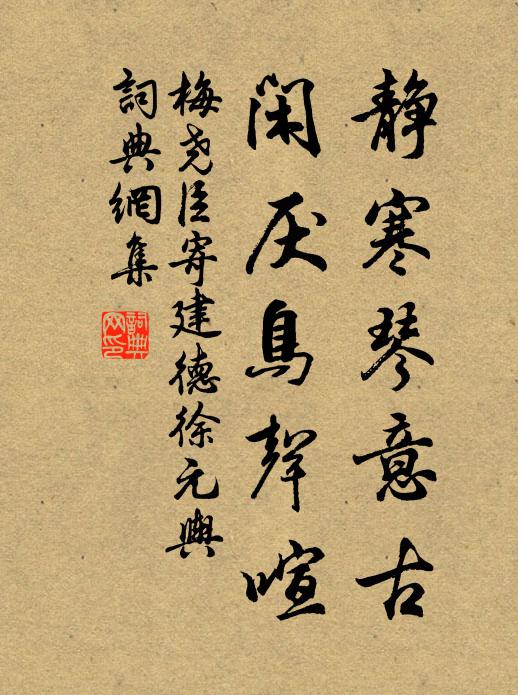 静寒琴意古
闲厌鳥聲喧
梅尧臣寄建德徐元輿
詞典網集
詞典網印